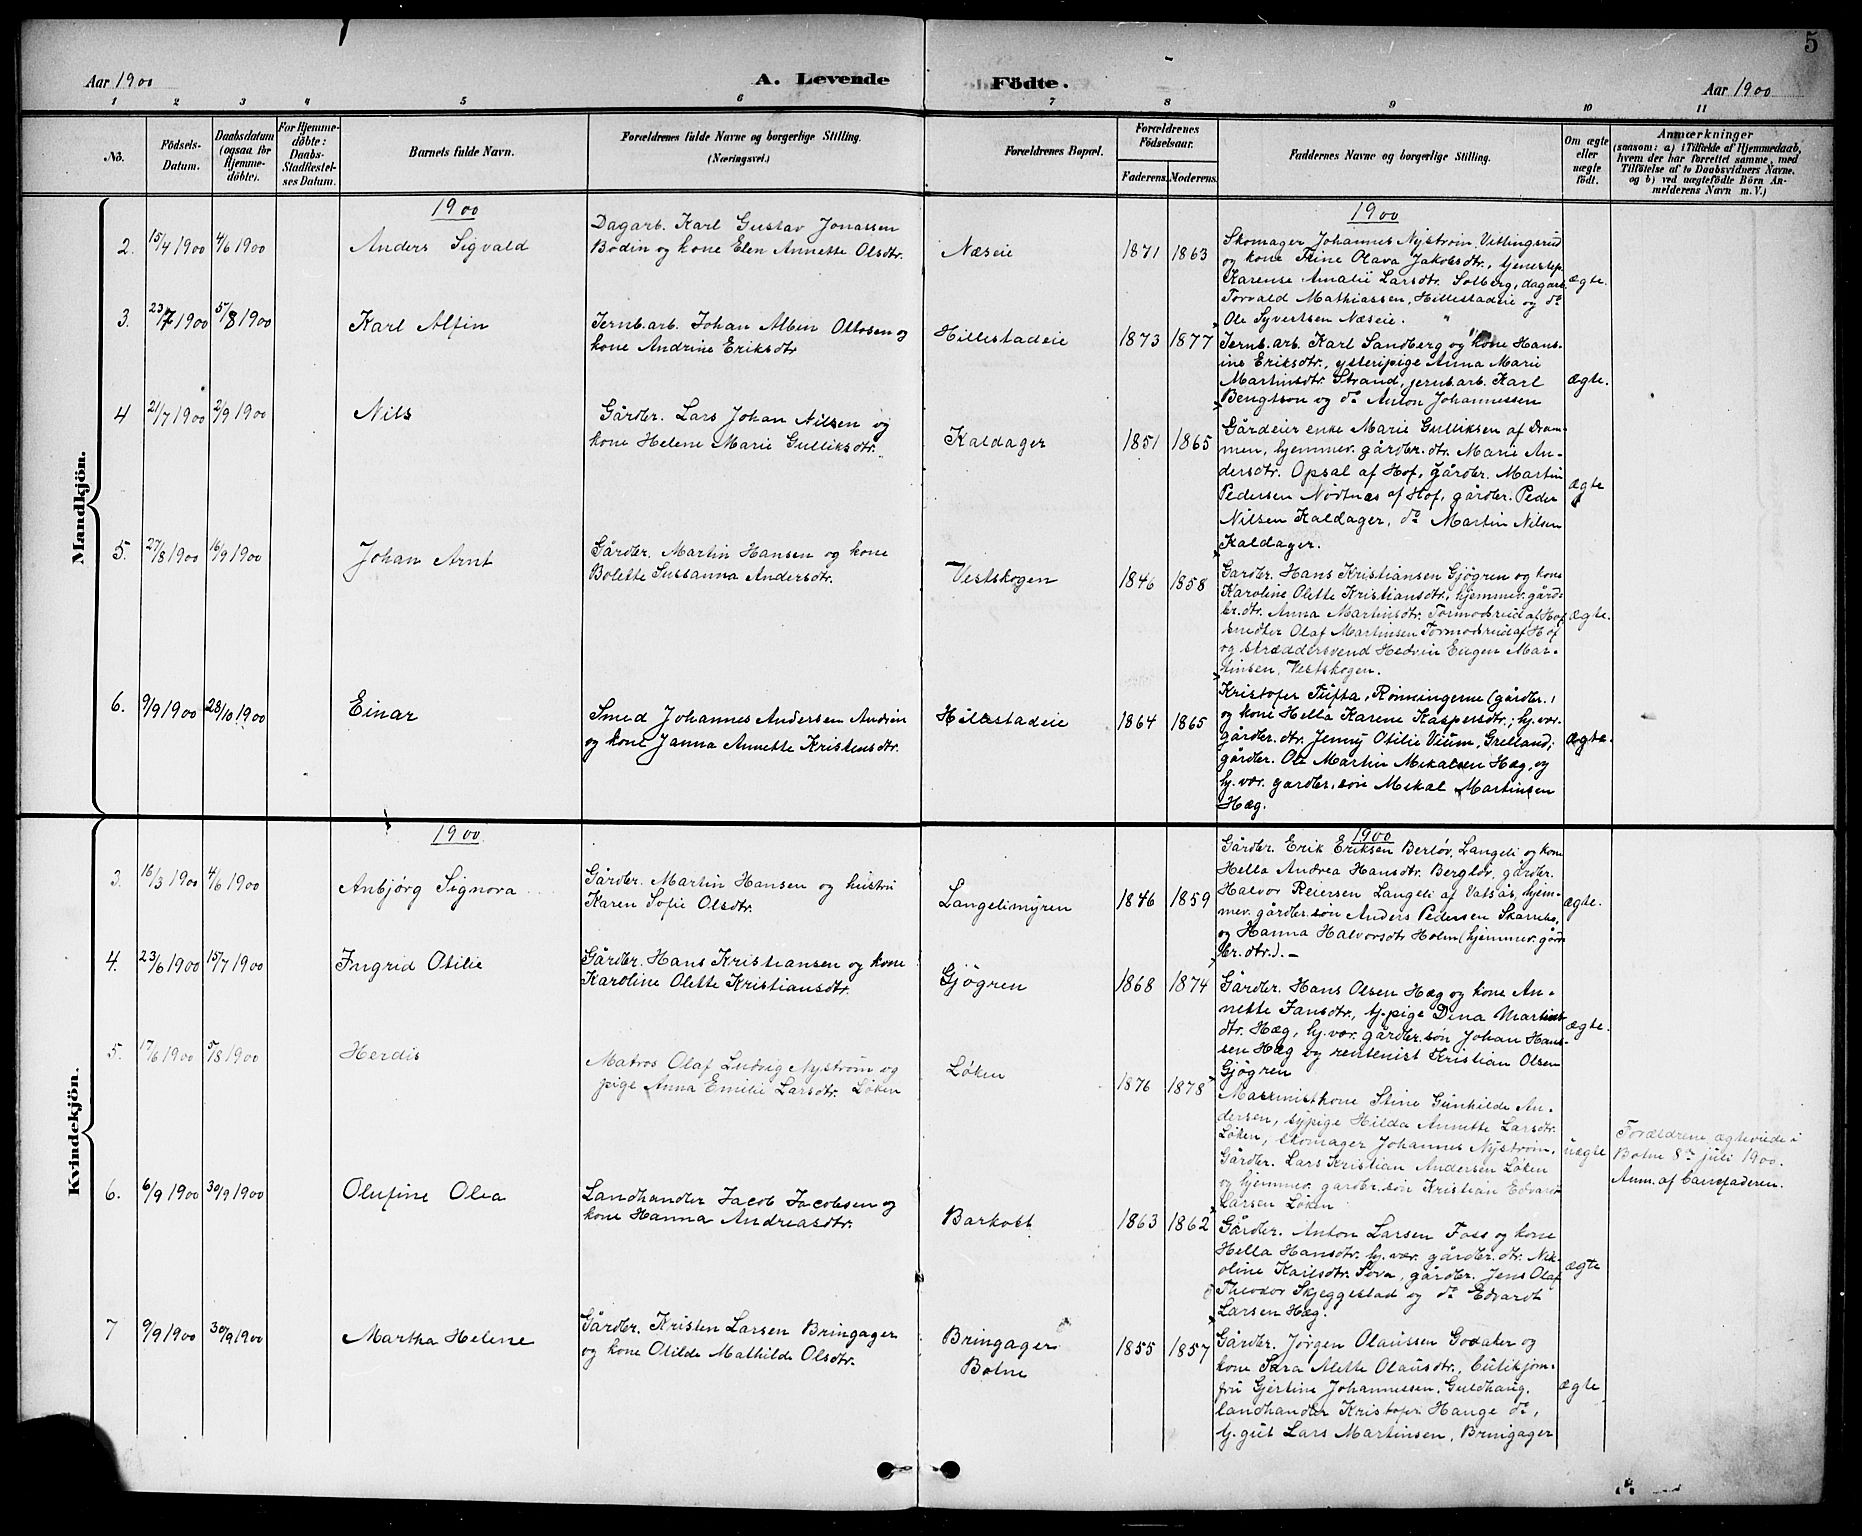 5
Aar 1900
A. Levende
Födte.
Aar 1900
1 2 3 4 5 6 7 8 9 10 11
No.
Födsels-
Datum.
Daabsdatum
(ogsaa for
Hjemme-
döbte).
For Hjemme-
döbte:
Daabs-
Stadfæstel-
ses Datum.
Barnets fulde Navn.
Forældrenes fulde Navne og borgerlige Stilling.
(Næringsvei.)
Forældrenes Bopæl.
Forældrenes
Födselsaar.
Faderens.
Moderens.
Faddernes Navne og borgerlige Stilling.
Om ægte
eller
uægte
födt.
Anmærkninger
(saasom: a) i Tilfælde af Hjemmedaab,
hvem der har forrettet samme, med
Tilföielse af to Daabsvidners Navne.
og b) ved uægtefödte Börn An-
melderens Navn m. V.)
Mandkjön.
1900
1900
2. 15/4 1900 4/6 1900
Anders Sigvald
Dagarb. Karl Gustav Jonassen
Bodin og kone Elen Annette Olsdtr.
Næseie
1871 1863
Skomager Johannes Nyström, Vetlingsrud
og kone Stine Olava Jakobsdtr., tjenestep.
Karense Amalie Larsdtr. Solberg, dagarb.
Torvald Mathiassen, Hillestadeie og do
Ole Syvertsen Næseie.
ægte.
3. 23/7 1900 5/8 1900
Karl Alfin
Jernb.arb. Johan Albin Ottosen og
kone Andrine Eriksdtr
Hillestadeie
1873 1877
Jernb.arb. Karl Sandberg og kone Hans-
ine Eriksdtr., ysteripige Anna Marie
Martinsdtr. Strand, jernb.arb. Karl
Bengtson og do Anton Johannessen
ægte.
4 21/7 1900 2/9 1900
Nils
Gårdbr. Lars Johan Nilsen og
kone Helene Marie Gulliksdtr.
Kaldager
1851 1865
Gårdeier enke Marie Gulliksen af Dram-
men, hjemmev. gårdbr. dtr. Marie An-
dersdtr. Opsal af Hof, gårdbr. Martin
Pedersen Nödtnæs af Hof, gårdbr. Peder
Nilsen Kaldager, do Martin Nilsen
Kaldager.
ægte
5. 27/8 1900 16/9 1900
Johan Arnt
Gårdbr. Martin Hansen og kone
Bolette Sussanna Andersdtr.
Vestskogen
1846 1858
Gardbr. Hans Kristiansen Gjögren og kone
Karoline Olette Kristiansdtr., hjemmev. gård-
br. dtr. Anna Martinsdtr. Tormodsrud af Hof
snedker Olaf Martinsen Tormodsrud af Hof
og skræddersvend Hedvin Eugen Mar-
tinsen, Vestskogen.
ægte.
6. 9/9 1900 28/10 1900
Einar
Smed Johannes Andersen Andrén
og kone Janna Annette Kristensdtr.
Hillestadeie
1864 1865
Kristofer Tufta, Rønningerne (gårdbr.)
og kone Hella Karene Kaspersdtr., hj. vær.
gårdbr. dtr. Jenny Otilie Vium, Grelland;
gårdbr. Ole Martin Mikalsen Hæg, og
hj. vær. gardbr. sön Mikal Martinsen
Hæg.
ægte.
Kvindekjön.
1900
1900
3. 16/3 1900 4/6 1900
Anbjörg Signora
Gårdbr. Martin Hansen og hustru
Karen Sofie Olsdtr.
Langelimyren
1846 1859
Gårdbr. Erik Eriksen Berlöv, Langeli og kone
Hella Andrea Hansdtr. Berglöv, gårdbr.
Halvor Reiersen Langeli af Vatsås, hjem-
mev. gårdbr. sön Anders Pedersen
og Hanna Halvorsdtr Holm (hjemmev. gård-
br. dtr.). –
ægte.
4. 23/6 1900 15/7 1900
Ingrid Otilie
Gårdbr. Hans Kristiansen og kone
Karoline Olette Kristiansdtr.
Gjögren
1868 1874
Gårdbr. Hans Olsen Hæg og kone An-
nette Fansdtr., tj.pige Dina Martins-
dtr. Hæg, hj. vær. gårdbr. sön Johan Hans-
sen Hæg og rentenist Kristian Olsen
Gjögren
ægte.
5. 17/6 1900 5/8 1900
Herdis
Matros Olaf Ludvig Nyström og
pige Anna Emilie Larsdtr. Løken
Løken
1876 1878
Maskinistkone Stine Gunhilde An-
dersen, sypige Hilda Annette Larsdtr.
Løken, skomager Johannes Nyström,
Gårdbr. Lars Kristian Andersen Løken
og hjemmev. gardbr. sön Kristian Edvard
Larsen Løken
uægte
Forældrene ægteviede i
Botne 8de juli 1900.
Anm. af barnefaderen.
6. 6/9 1900 30/9 1900
Olufine Olea
Landhandler Jacob Jacobsen og
kone Hanna Andreasdtr.
Barkost
1863 1862
Gårdbr. Anton Larsen Foss og kone
Hella Hansdtr. hj. vær. gårdbr. dtr. Nik-
oline Karlsdtr. gårdbr. Jens Olaf
Theodor Skjeggestad og do Edvardt
Larsen Hæg.
ægte
7 9/9 1900 30/9 1900
Martha Helene
Gårdbr. Kristen Larsen Bringager
og kone Otilde Mathilde Olsdtr.
Bringager
Botne
1855 1857
Gårdbr. Jörgen Olaussen Godaker og
kone Sara Alette Olausdtr., Butikjom-
fru Gjertine Johannessen, Guldhaug,
landhandler Kristofer Hauge do,
tj.gut Lars Martinsen, Bringager
ægte